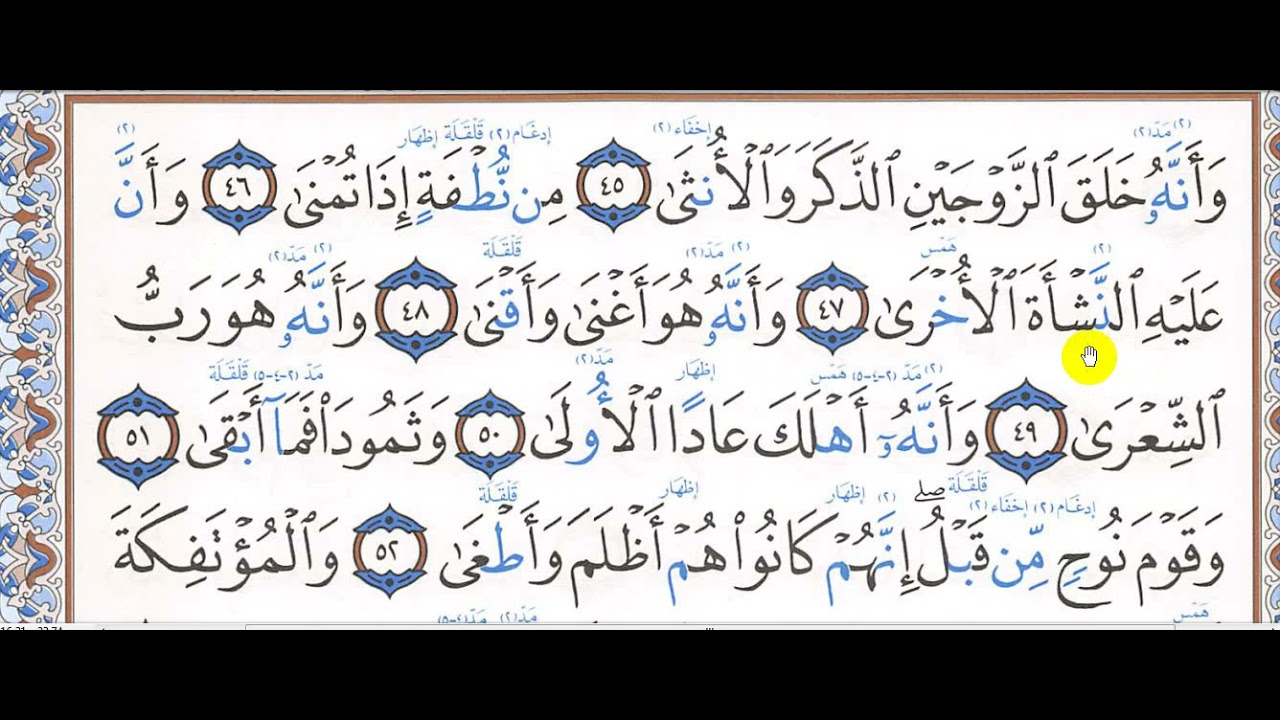 (٢) مَدّ(٢) إخْفَاء (٢) إدغَام (٢) قَلْقَلَة إظهَار (٢)
وَأَنَّهُۥ خَلَقَ ٱلزَّوۡجَيۡنِ ٱلذَّكَرَ وَٱلۡأُنثَىٰ ٤٥ مِن نُّطۡفَةٍ إِذَا تُمۡنَىٰ ٤٦ وَأَنَّ
(٢) هَمْس (٢) مَدّ(٢) قَلْقَلَة (٢) مَدّ(٢)
عَلَيۡهِ ٱلنَّشۡأَةَ ٱلۡأُخۡرَىٰ ٤٧ وَأَنَّهُۥ هُوَ أَغۡنَىٰ وَأَقۡنَىٰ ٤٨ وَأَنَّهُۥ هُوَ رَبُّ
(٢) مَدّ (٢-٤-٥) هَمْس إظهَار مَدّ(٢) مَدّ (٢-٤-٥) قَلْقَلَة
ٱلشِّعۡرَىٰ ٤٩ وَأَنَّهُۥٓ أَهۡلَكَ عَادًا ٱلۡأُولَىٰ ٥٠ وَثَمُودَاْ فَمَآ أَبۡقَىٰ ٥١
إدغَام (٢) إخْفَاء (٢) قَلْقَلَة (٢) إظهَار إظهَار قَلْقَلَة
وَقَوۡمَ نُوحٍ مِّن قَبۡلُۖ إِنَّهُمۡ كَانُواْ هُمۡ أَظۡلَمَ وَأَطۡغَىٰ ٥٢ وَٱلۡمُؤۡتَفِكَةَ
هَمْس مَدّ(٢) مَدّ(٤-٥)